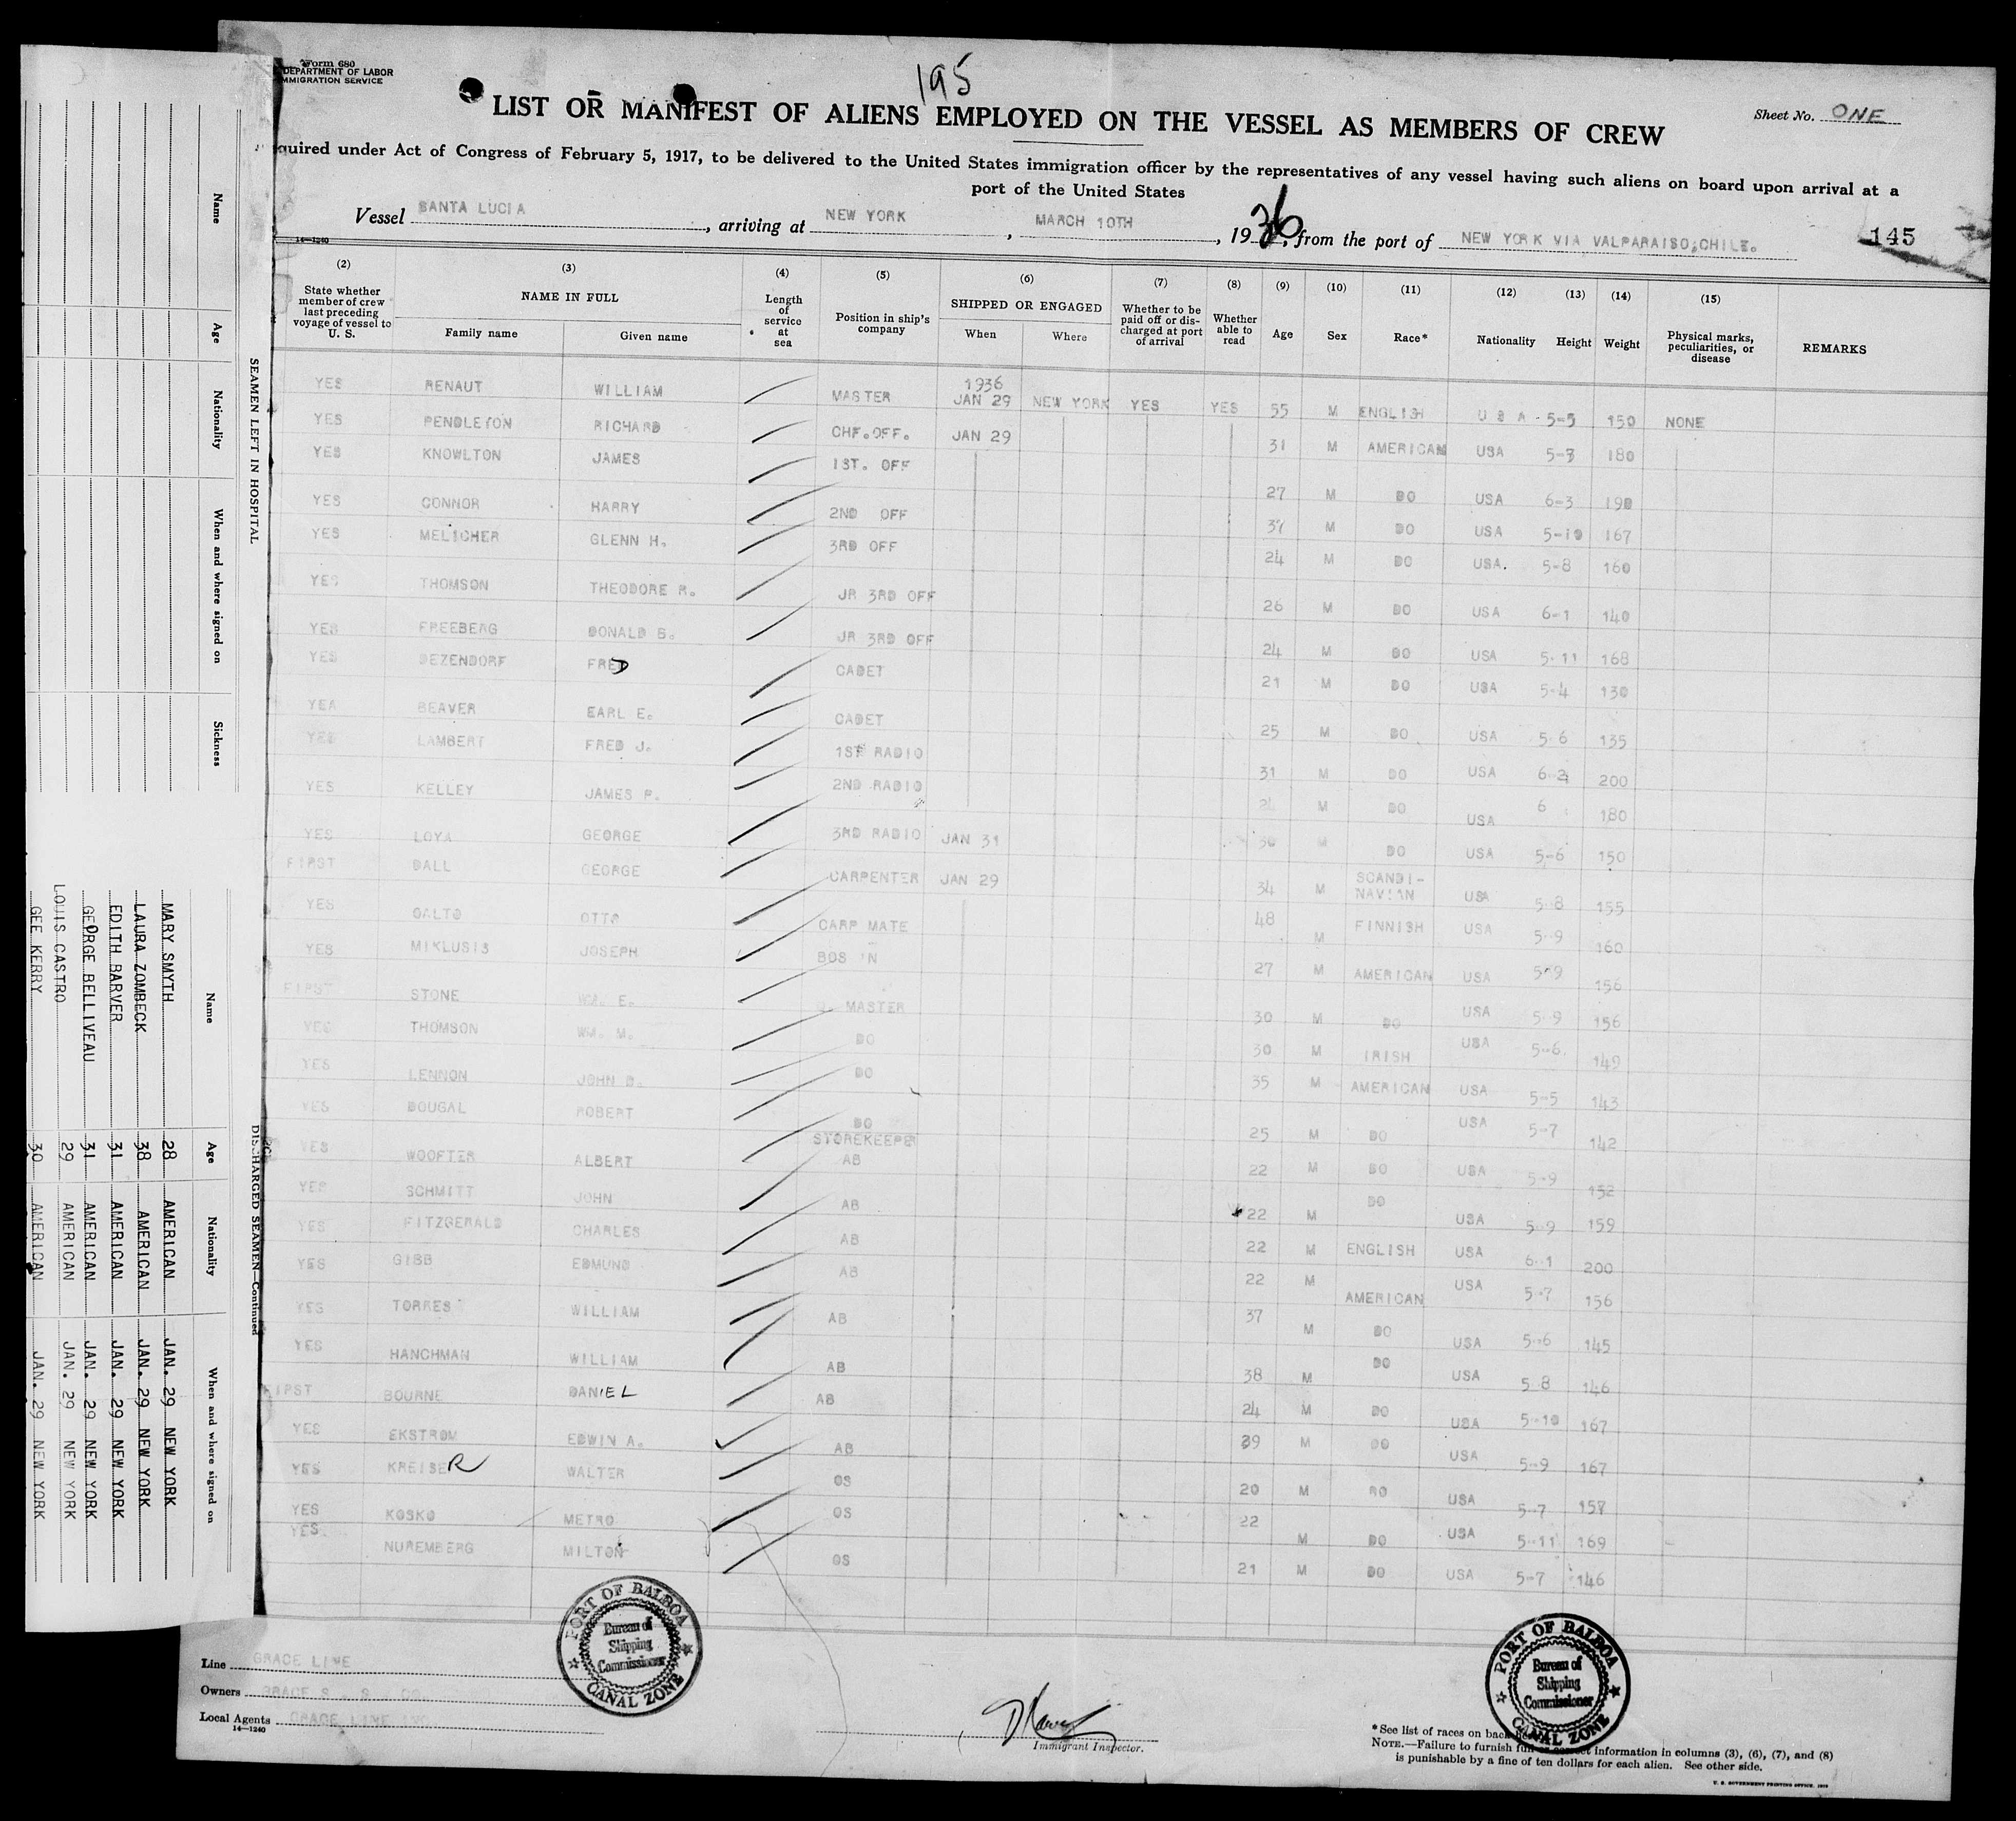 Form 680
DEPARTMENT OF LABOR
IMMIGRATION SERVICE
195
LIST OR MANIFEST OF ALIENS EMPLOYED ON THE VESSEL AS MEMBERS OF CREW
Sheet No. ONE
quired under Act of Congress of February 5, 1917, to be delivered to the United States immigration officer by the representatives of any vessel having such aliens on board upon arrival at a
port of the United States
Vessel SANTA LUCIA, arriving at NEW YORK, MARCH 10TH, 1936, from the port of NEW YORK VIA VALPARAISO, CHILE. 145
14—1240
(2) (3) (4) (5) (6) (7) (8) (9) (10) (11) (12) (13) (14) (15)
State whether member of crew last preceding voyage of vessel to U. S. NAME IN FULL Family name Given name Length of service at sea Position in ship's company SHIPPED OR ENGAGED When Where Whether to be paid off or discharged at port of arrival Whether able to read Age Sex Race* Nationality Height Weight Physical marks, peculiarities, or disease REMARKS
YES RENAUT WILLIAM MASTER 1936 JAN 29 NEW YORK YES YES 55 M ENGLISH U S A 5-5 150 NONE
YES PENDLETON RICHARD CHF.OFF. JAN 29 31 M AMERICAN USA 5-3 180
YES KNOWLTON JAMES 1ST. OFF 27 M DO USA 6-3 190
YES CONNOR HARRY 2ND OFF 37 M DO USA 5-10 167
YES MELICHER GLENN H. 3RD OFF 24 M DO USA. 5-8 160
YES THOMSON THEODORE R. JR 3RD OFF 26 M DO USA 6-1 140
YES FREEBERG DONALD B. JR 3RD OFF 24 M DO USA 5-11 168
YES DEZENDORF FRED CADET 21 M DO USA 5-4 130
YEA BEAVER EARL E. CADET 25 M DO USA 5-6 135
YES LAMBERT FRED J. 1ST RADIO 31 M DO USA 6-2 200
YES KELLEY JAMES P. 2ND RADIO 24 M DO USA 6 180
YES LOYA GEORGE 3RD RADIO JAN 31 30 M DO USA 5-6 150
FIRST BALL GEORGE CARPENTER JAN 29 34 M SCANDI-NAVIAN USA 5-8 155
YES OALTO OTTO CARP MATE 48 M FINNISH USA 5-9 160
YES MIKLUSIS JOSEPH BOS'N 27 M AMERICAN USA 5-9 156
FIRST STONE WM. E. Q. MASTER 30 M DO USA 5-9 156
YES THOMSON WM. M. DO 30 M IRISH USA 5-6 149
YES LENNON JOHN D. DO 35 M AMERICAN USA 5-5 143
YES DOUGAL ROBERT DO STOREKEEPER 25 M DO USA 5-7 142
YES WOOFTER ALBERT AB 22 M DO USA 5-9 152
YES SCHMITT JOHN AB 22 M DO USA 5-9 159
YES FITZGERALD CHARLES AB 22 M ENGLISH USA 6-1 200
YES GIBB EDMUND AB 22 M AMERICAN USA 5-7 156
YES TORRES WILLIAM AB 37 M DO USA 5-6 145
YES HANCHMAN WILLIAM AB 38 M DO USA 5-8 146
FIRST BOURNE DANIEL AB 24 M DO USA 5-10 167
YES EKSTROM EDWIN A. AB 39 M DO USA 5-9 167
YES KREISER WALTER OS 20 M DO USA 5-7 157
YES KOSKO METRO OS 22 M DO USA 5-11 169
YES. NUREMBERG MILTON OS 21 M DO USA 5-7 146
Line GRACE LINE
Owners GRACE S. S. CO.
Local Agents GRACE LINE INC
14—1240
PORT OF BALBOA
Bureau of
Shipping
Commissioner
CANAL ZONE
Immigrant Inspector.
PORT OF BALBOA
Bureau of
Shipping
Commissioner
CANAL ZONE
*See list of races on back
NOTE.—Failure to furnish full or correct information in columns (3), (6), (7), and (8)
is punishable by a fine of ten dollars for each alien. See other side.
U. S. GOVERNMENT PRINTING OFFICE
SEAMEN LEFT IN HOSPITAL
Name Age Nationality When and where signed on Sickness
DISCHARGED SEAMEN—Continued
Name Age Nationality When and where signed on
MARY SMYTH 28 AMERICAN JAN. 29 NEW YORK
LAURA ZOMBECK 38 AMERICAN JAN. 29 NEW YORK
EDITH BARVER 31 AMERICAN JAN. 29 NEW YORK
GEORGE BELLIVEAU 31 AMERICAN JAN. 29 NEW YORK
LOUIS CASTRO 29 AMERICAN JAN. 29 NEW YORK
GEE KERRY 30 AMERICAN JAN. 29 NEW YORK